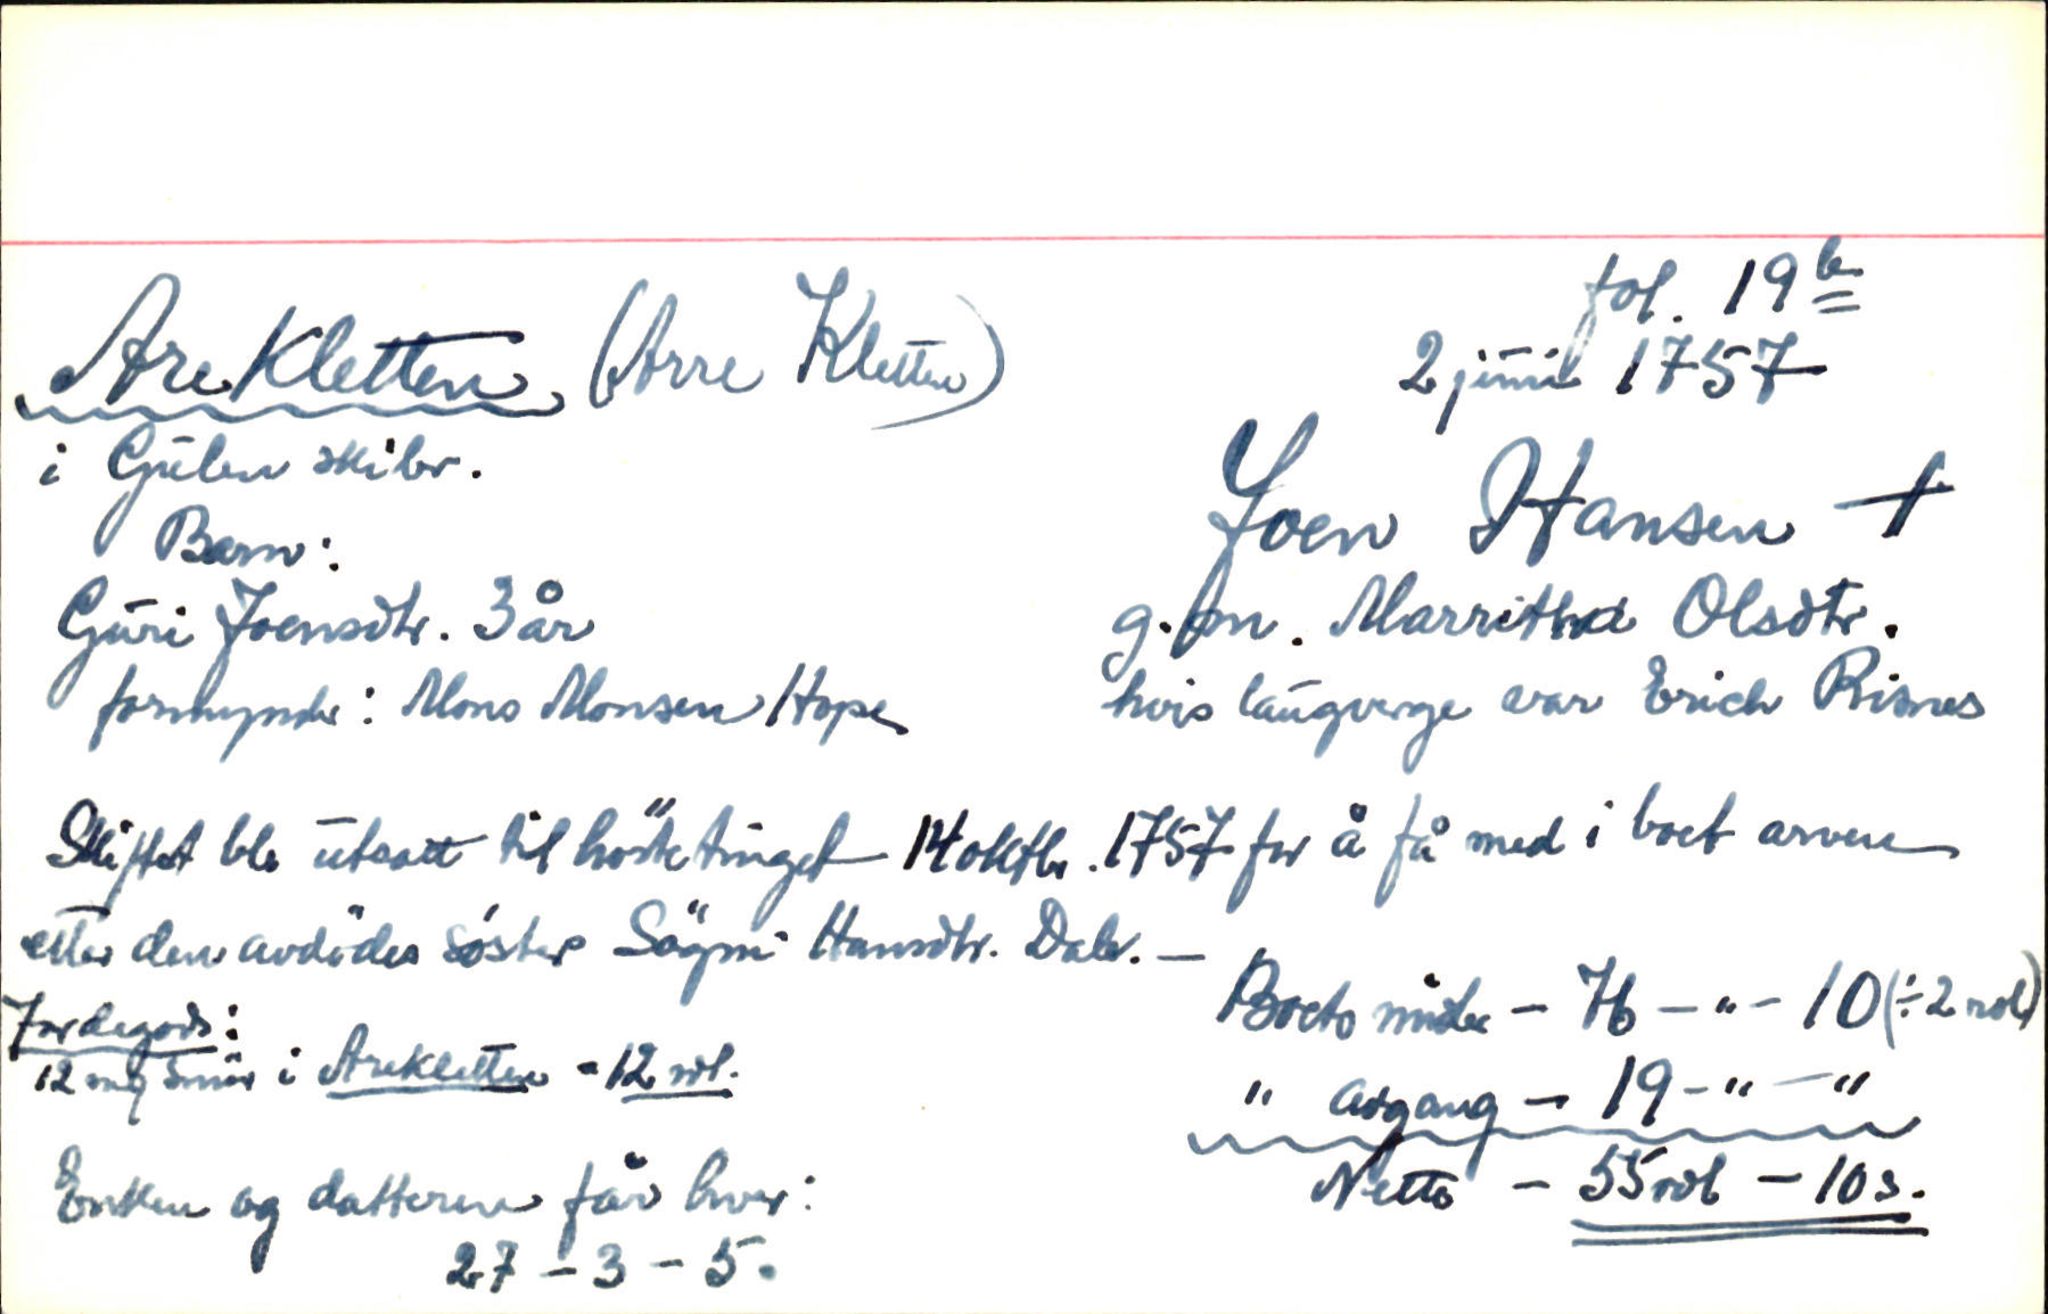 fol. 19 b
Arekletten (Arre Kletten)
2 juni 1757
i Gulen skibr.
Joen Hansen +
Barn:
Guri Joensdtr. 3 år
g.m. Marritha Olsdtr.
formynder: Mons Monsen Hope
hvis laugverge var Erich Risnes
Skiftet ble utsatt til høstetinget 14 oktbr. 1757 for å få med i boet arven
etter den avdødes søster Sögni Hansdtr. Dale. —
Jordegods:
Boets midler – 76 – " – 10 (÷ 2 rdl)
12 mrk smör i Arekletten = 12 rdl.
" avgang – 19 – " – "
Netto – 55 rdl – 10 s.
Enken og datteren får hver:
27 – 3 – 5.